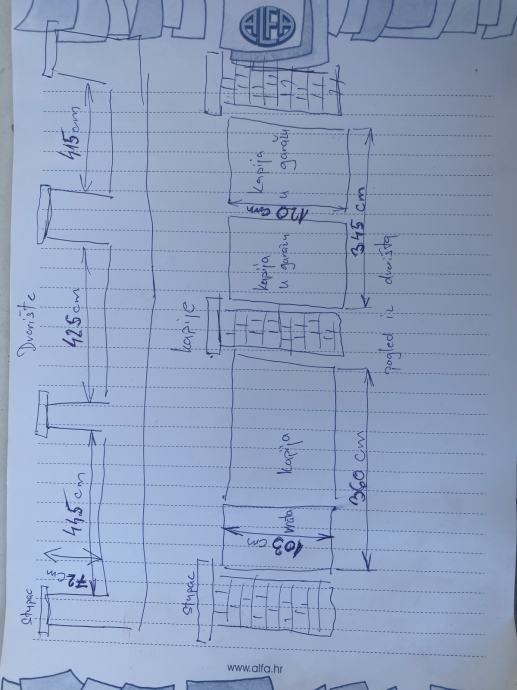 ALFA
Dvorište
stupac
72 cm
445 cm
425 cm
415 cm
kapije
stupac
vrata
103 cm
kapija
360 cm
kapija
u garažu
kapija
u garažu
120 cm
345 cm
pogled iz dvorišta
www.alfa.hr